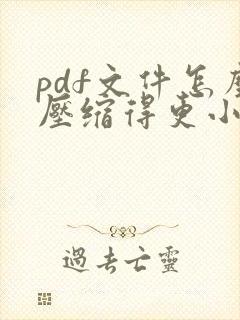 pdf文件怎麼
壓缩得更小
過去亡靈